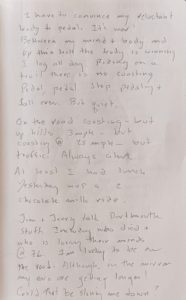 I have to convince my reluctant
body to pedal. It's now
Between my mind & body and
up this hill the body is winning
I log all day. Riding on a
trail there is no coasting
Pedal pedal stop pedaling &
fall over. But quiet.
On the road coasting - but
up hills 3 mph - but
coasting @ 25 mph - but
traffic. Always
At least I had lunch
yesterday was a 2
chocolate milk ride.
Jim & Jerry talk Dartmouth
stuff. Including who died &
who is losing their minds
@ 76. I am lucky to be on
the road. Although, in the mirror
my ears are getting longer.
Could that be slowing me down?